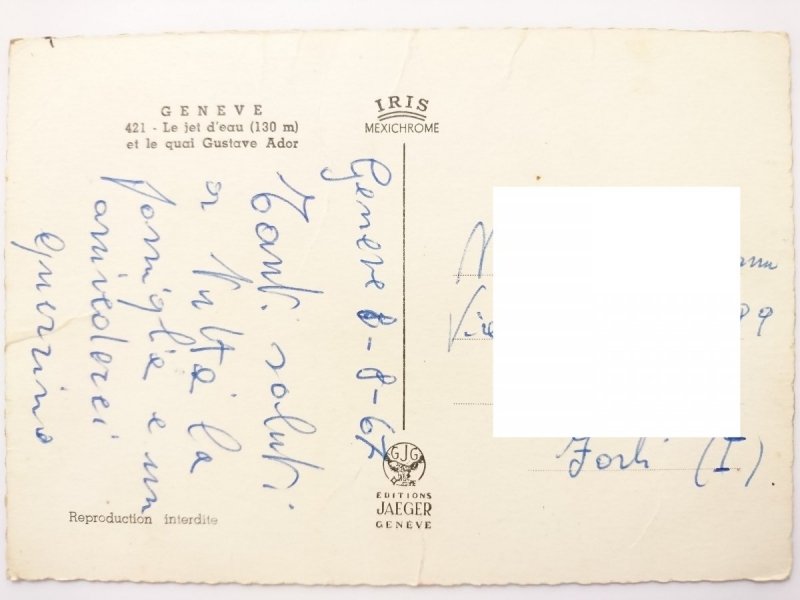 GENEVE
421 - Le jet d'eau (130 m)
et le quai Gustave Ador
IRIS
MEXICHROME
Geneve 8-8-67
Tanti saluti
a tutta la
famiglia e un
arrivederci
Guerrino
Reproduction interdite
GJG
EDITIONS
JAEGER
GENÉVE
89
Forlì (I)